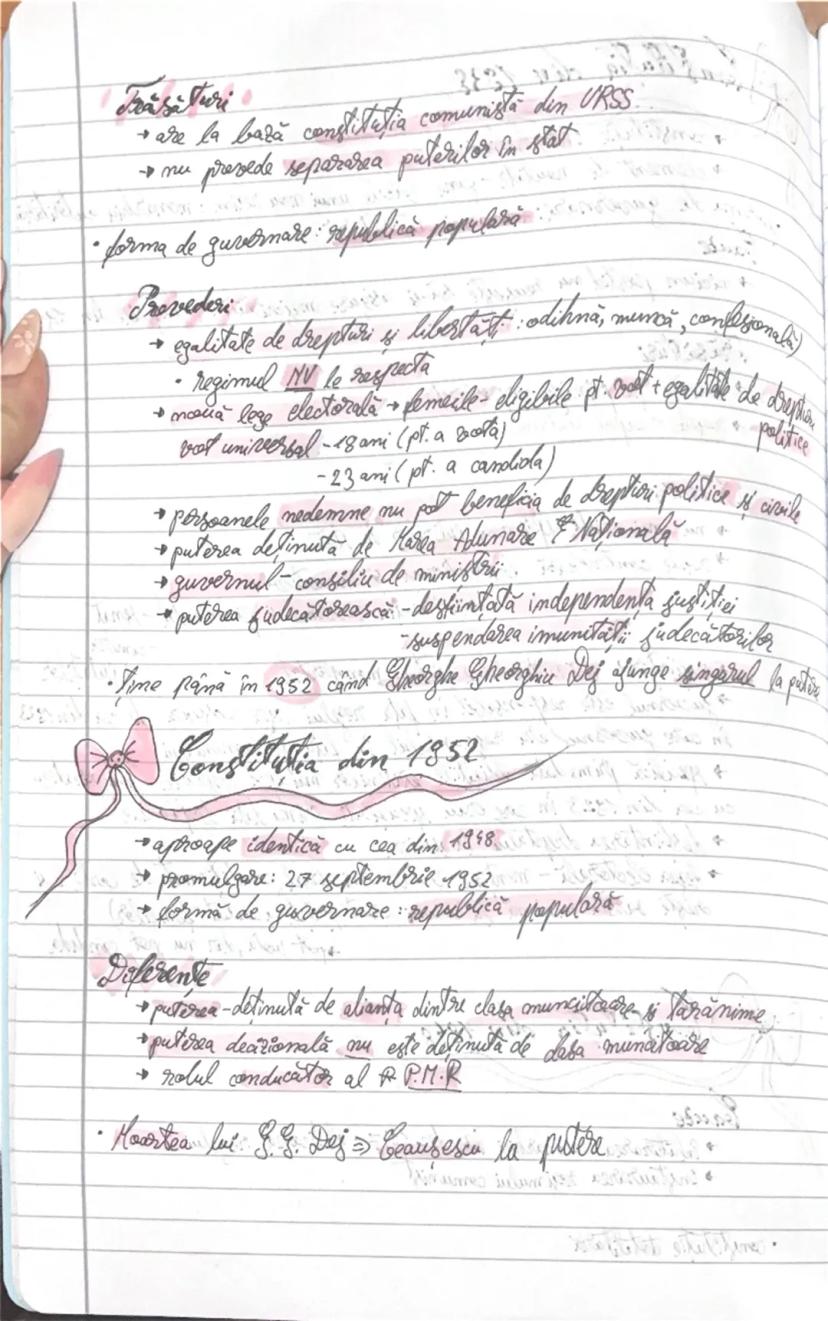 Trăsături
→ are la bază constituția comunistă din URSS
→ nu prevede separarea puterilor în stat
• forma de guvernare: republică populară
Prevederi
→ egalitate de drepturi și libertăți: odihnă, muncă, confesională)
• regimul NU le respecta
→ nouă lege electorală → femeile - eligibile pt. vot + egalitate de drepturi
politice
vot universal - 18 ani (pt. a vota)
- 23 ani (pt. a candida)
→ persoanele nedemne nu pot beneficia de drepturi politice și civile
→ puterea deținută de Marea Adunare Națională
→ guvernul - consiliu de miniștrii
→ puterea judecătorească - desființată independența justiției
- suspendarea imunității judecătorilor
• Ține până în 1952 când Gheorghe Gheorghiu Dej ajunge singurul la putere
Constituția din 1952
→ aproape identică cu cea din 1948
→ promulgare: 27 septembrie 1952
→ formă de guvernare: republică populară
Diferențe
→ puterea - deținută de alianța dintre clasa muncitoare și țărănime
→ puterea decizională nu este deținută de clasa muncitoare
→ rolul conducător al P.M.R
• Moartea lui G.G. Dej => Ceaușescu la putere